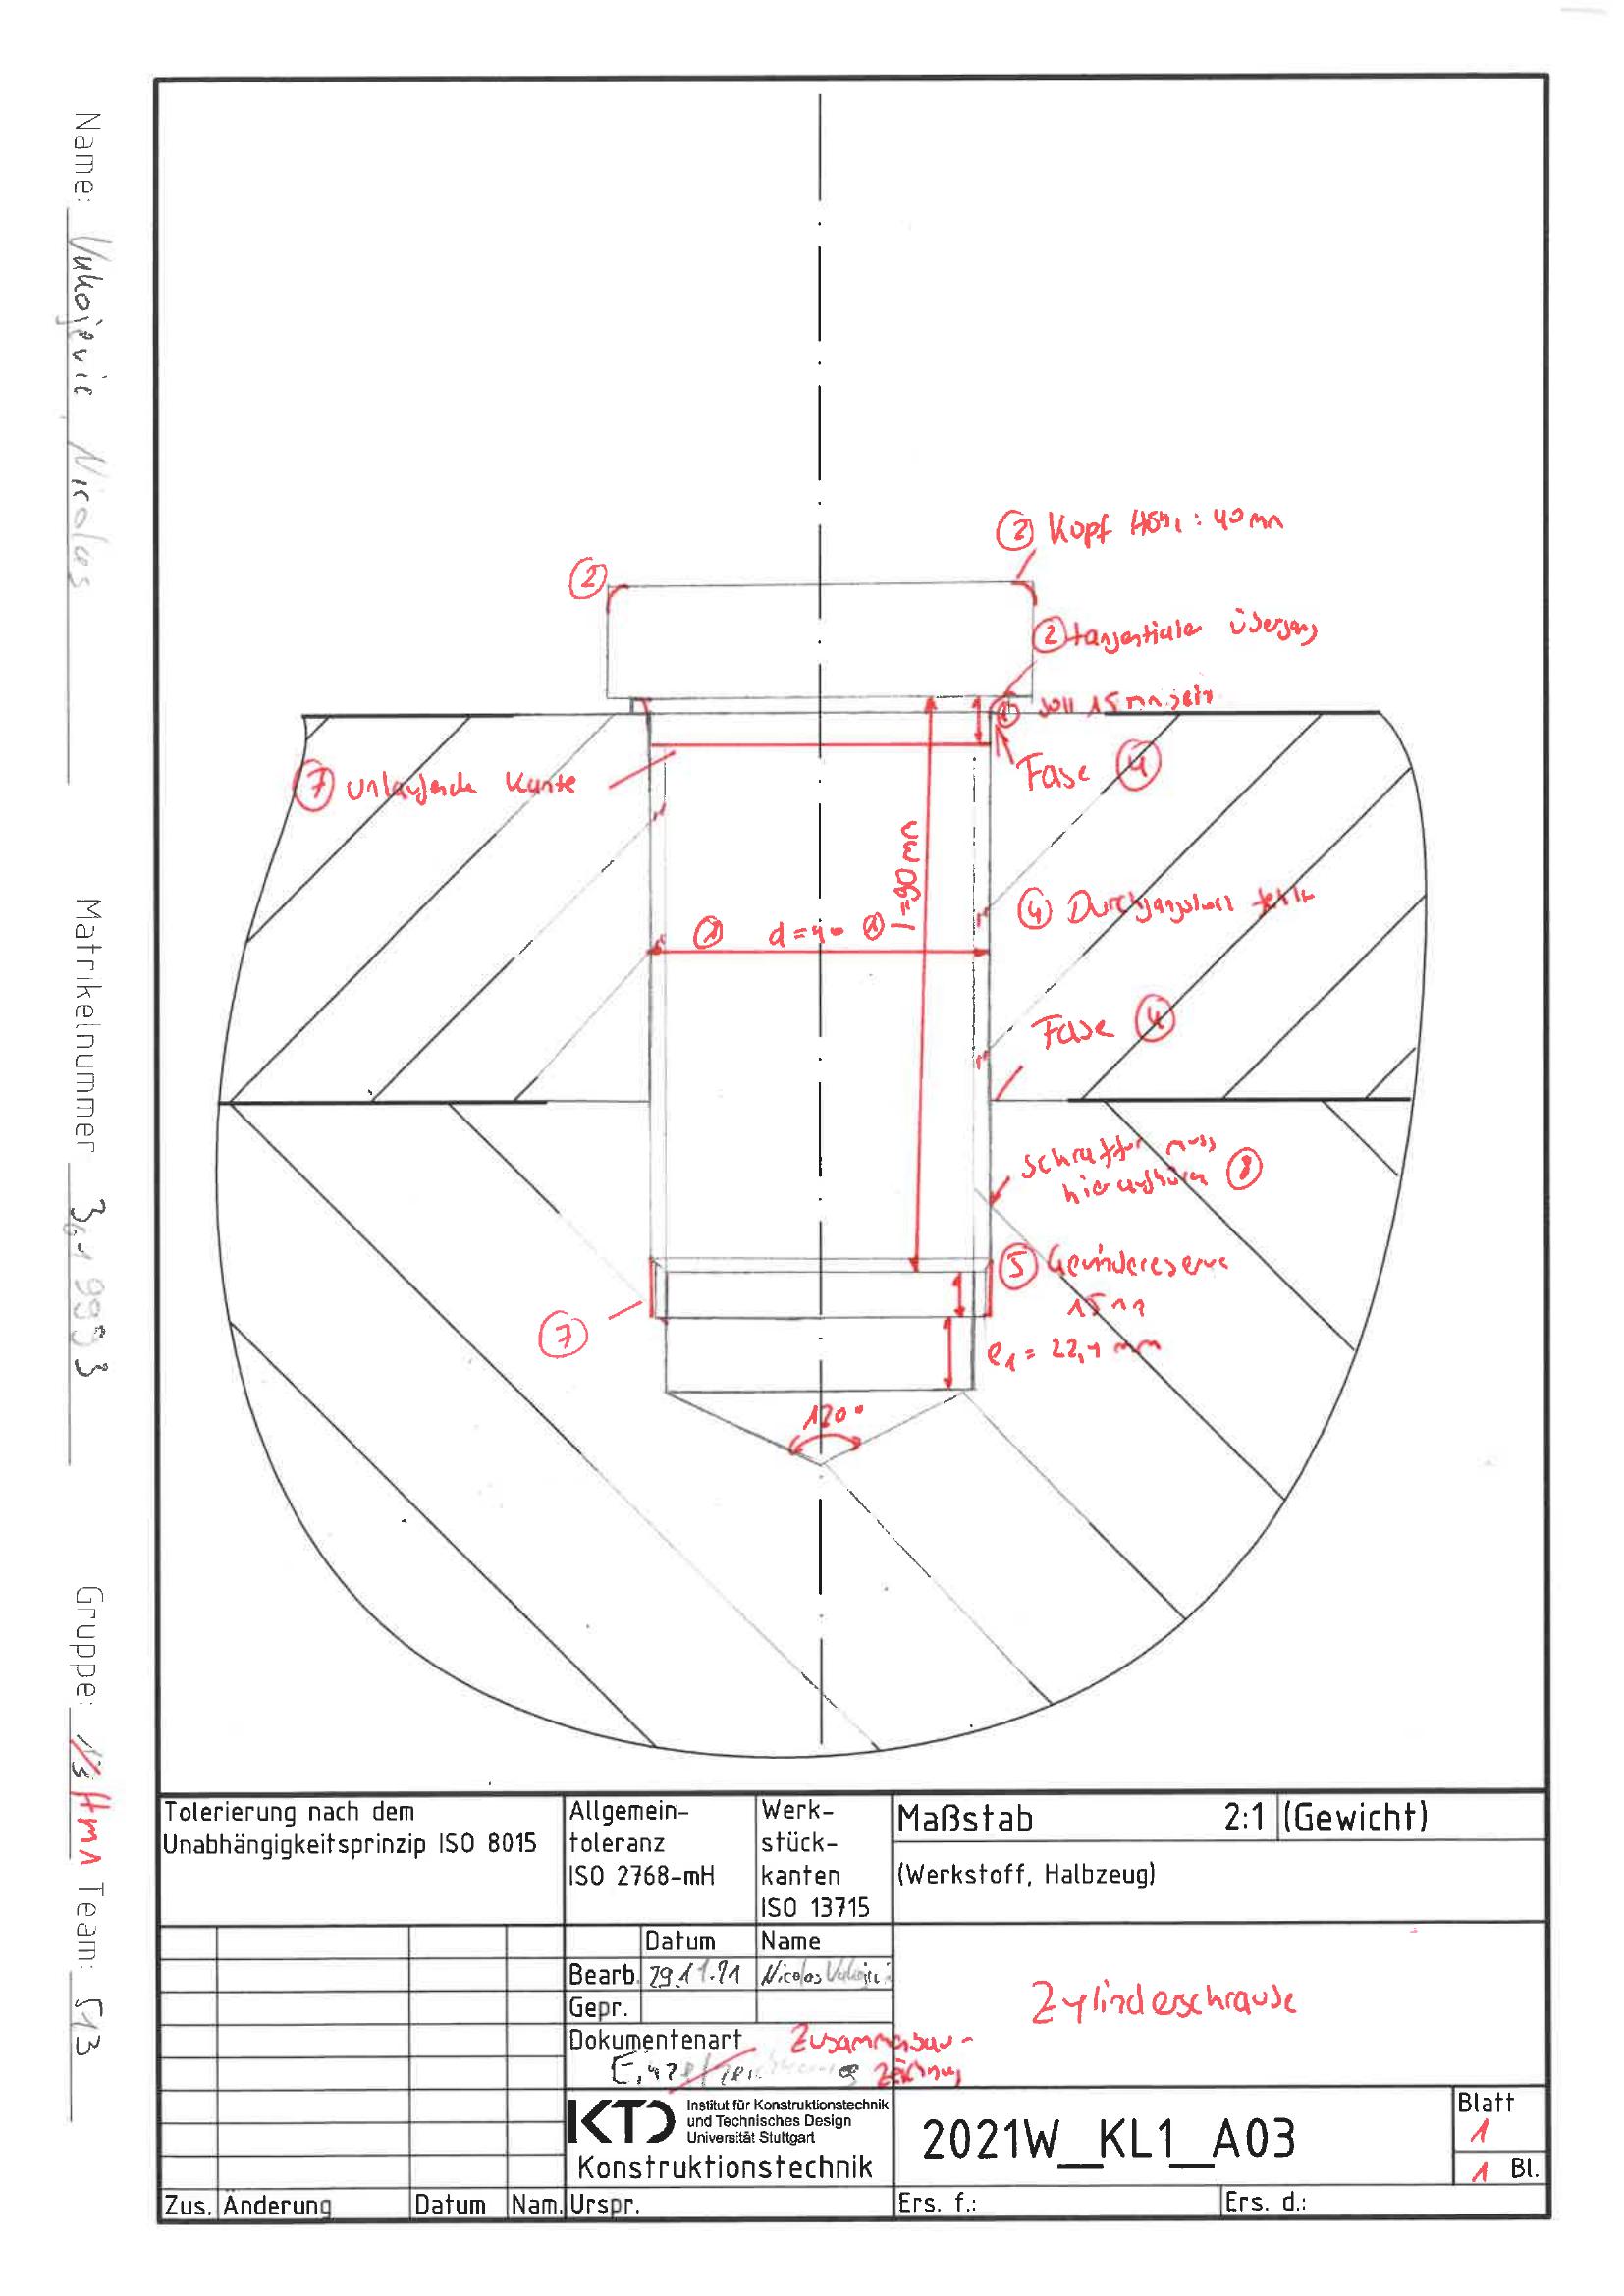 Name: Vukojevic, Nicolas
Matrikelnummer
Gruppe: Hm1 Team: 513
② Kopf : 40 mm
②
② tangentialer Übergang
① soll 15 mm sein
Fase ④
⑦ Umlaufende Kante
l=90 mm
④ Durchgangsloch fehlt
① d=40 ①
Fase ④
Schraffur muss
hier aufhören ⑧
⑤ Gewindereserve
15
⑦
e₁ = 22,1 mm
120°
Tolerierung nach dem
Unabhängigkeitsprinzip ISO 8015
Allgemein-
toleranz
ISO 2768-mH
Werk-
stück-
kanten
ISO 13715
Maßstab 2:1 (Gewicht)
(Werkstoff, Halbzeug)
Datum Name
Bearb. 29.11.21 Nicolas Vukojevic
Gepr.
Dokumentenart Zusammenbau-
Einzelteilzeichnung zeichnung
Zylinderschraube
KTD Institut für Konstruktionstechnik
und Technisches Design
Universität Stuttgart
Konstruktionstechnik
2021W_KL1_A03
Blatt
1
1 Bl.
Zus. Änderung Datum Nam. Urspr. Ers. f.: Ers. d.: